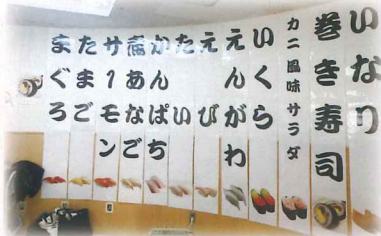 いなり
巻き寿司
カニ風味サラダ
いくら
えんがわ
えび
たい
かんぱち
煮あなご
サーモン
たまご
まぐろ